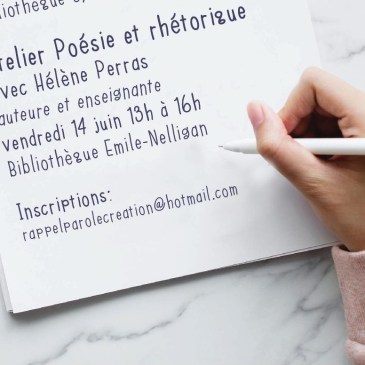 Poésie et rhétorique
avec Hélène Perras
auteure et enseignante
vendredi 14 juin 13h à 16h
Bibliothèque Emile-Nelligan
Inscriptions:
rappelparolecreation@hotmail.com